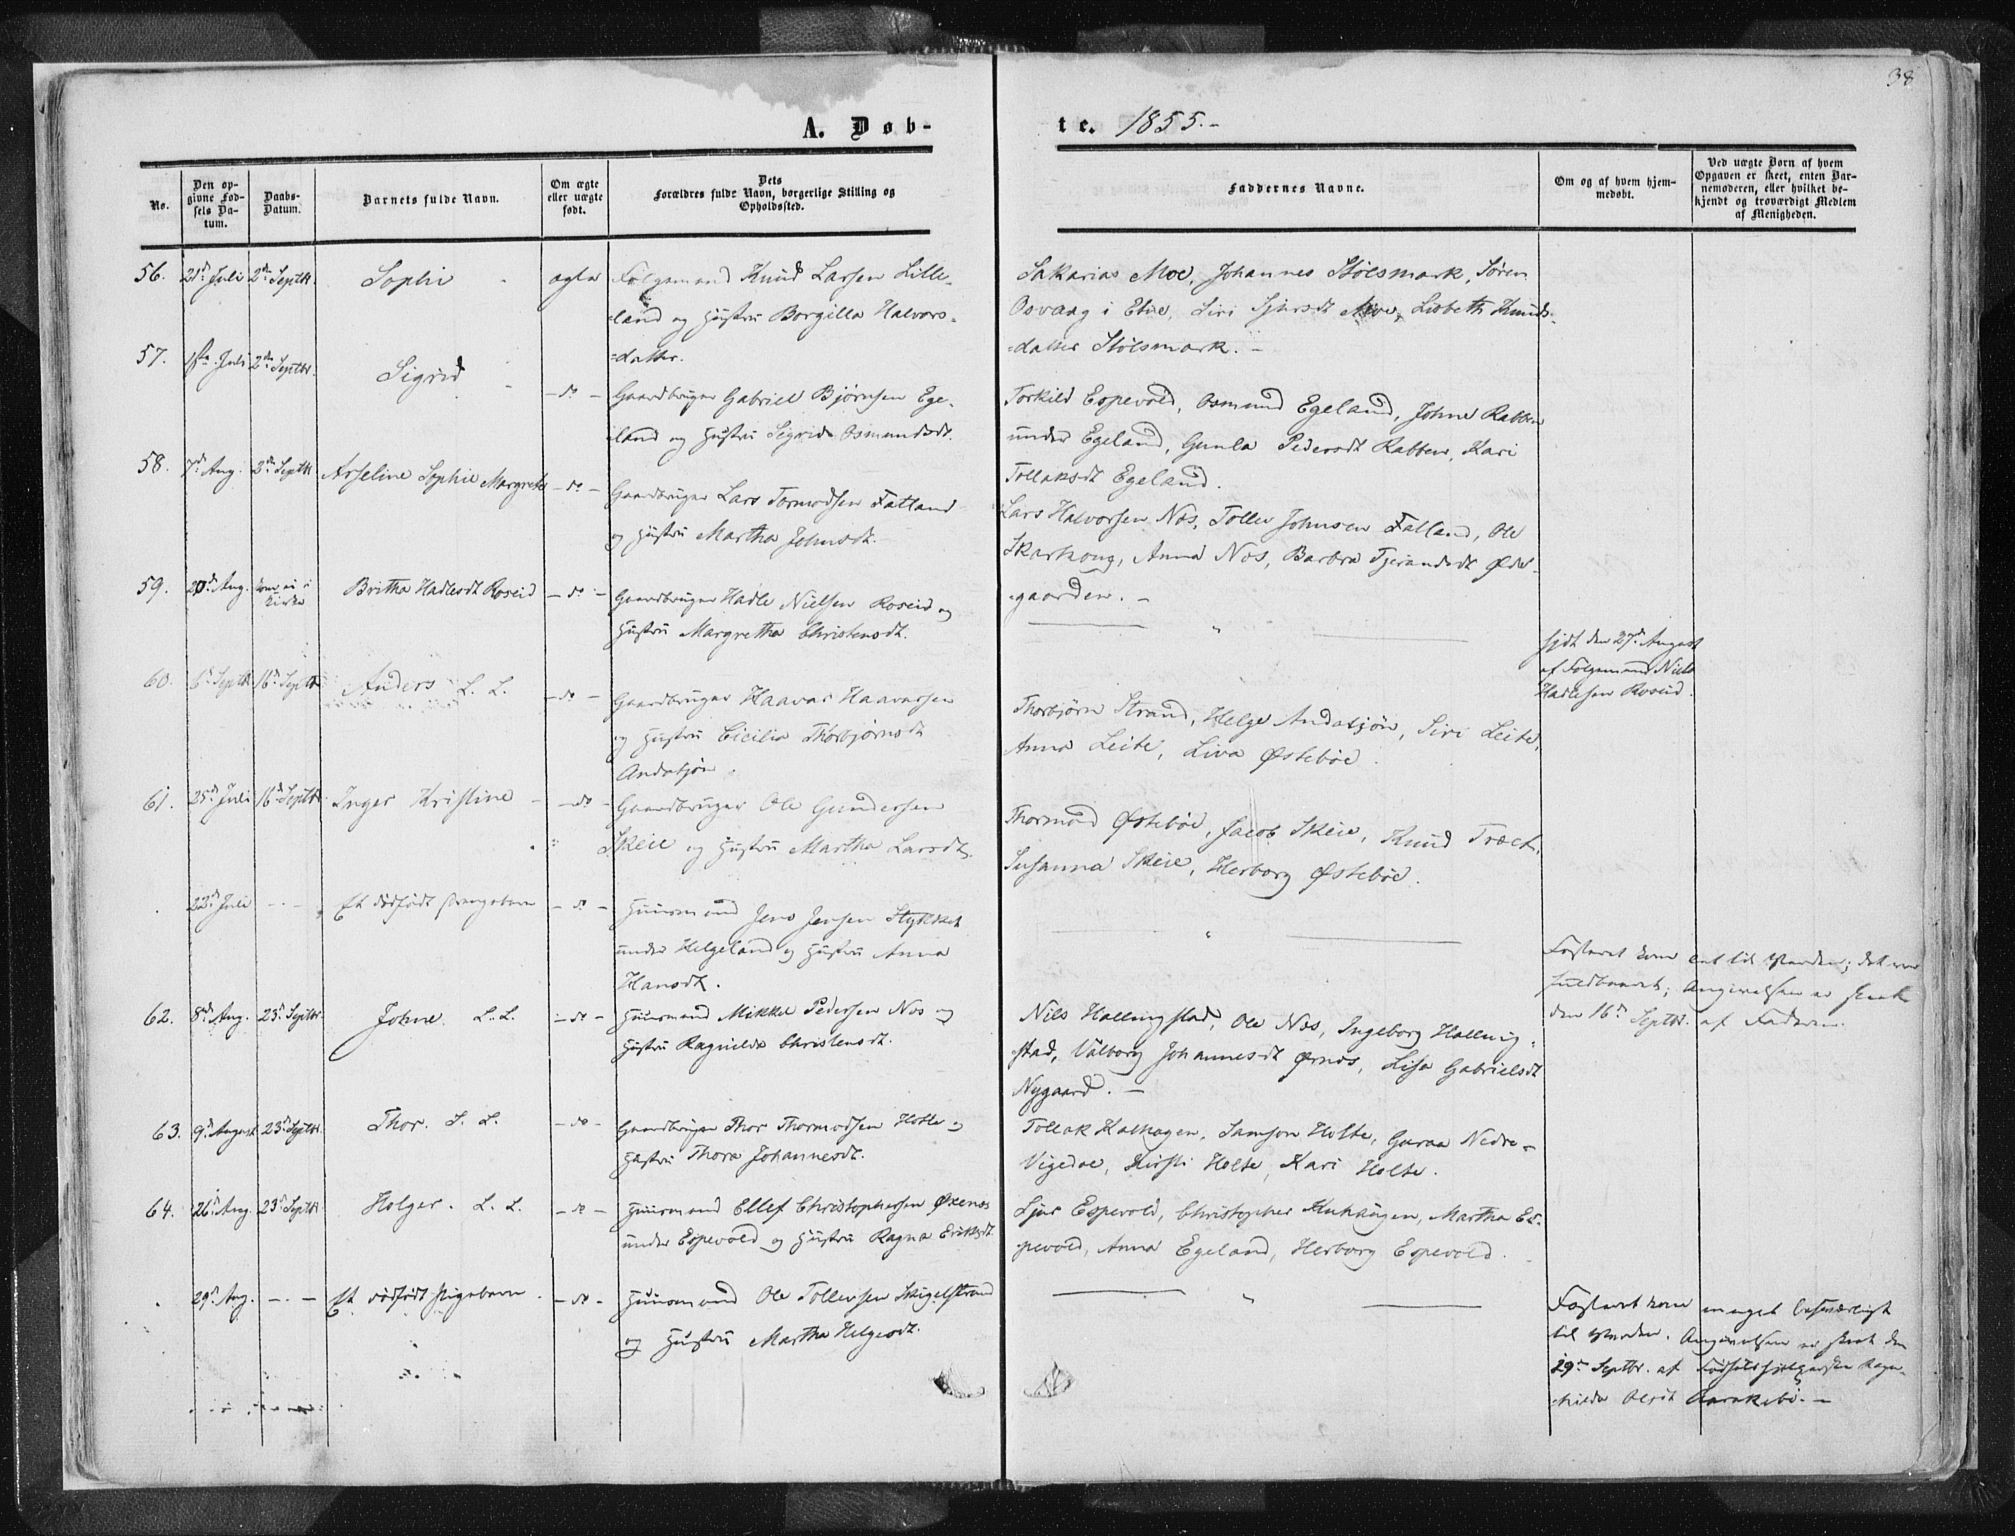 38
A. Døb-
te. 1855.-
No.
Den opgivne Fødsels Datum.
Daabs-Datum.
Barnets fulde Navn.
Om ægte eller uægte født.
Dets Forældres fulde Navn, borgerlige Stilling og Opholdssted.
Faddernes Navne.
Om og af hvem hjemmedøbt.
Ved uægte Børn af hvem Opgaven er skeet, enten Barnemoderen, eller hvilket bekjendt og troværdigt Medlem af Menigheden.
56. 21d Juli 2den Septbr. Sophi ægte Følgemand Knud Larsen Lille-
land og Hustru Borgilla Halvors-
datter.
Sakarias Moe, Johannes Stølsmark, Søren
Osvaag i Etne, Siri Sjursdt Moe, Lisbeth Knuds-
datter Stølsmark. -
57. Juli 2den Septbr. Sigrid - do - Gaardbruger Gabriel Bjørnsen Ege-
land og Hustru Sigrid Osmundsdt.
Torkild Espevold, Osmund Egeland, Johne Rabben
under Egeland, Gunla Pedersdt Rabben, Kari
Tollaksdt Egeland.
58. 7d Aug. 2den Septbr. Asseline Sophie Margrete - do - Gaardbruger Lars Tormodsen Fatland
og Hustru Martha Johnsdt.
Lars Halvorsen Nos, Tollev Johnsen Fatland, Ole
Skarhoug, Anna Nos, Barbra Tjerandsdt Øde-
gaarden. -
59. 20d Aug. kom ei i Kirke Britha Hadlesdt Roseid - do - Gaardbruger Hadle Nielsen Roseid og
Hustru Margretha Christensdt.
hjdt den 27d August
af Følgemand Niels
Hadlesen Roseid.
60. 6d Septbr 16d Septbr Anders L. L. - do - Gaardbruger Haavar Haavarsen
og Hustru Cicilia Thorbjørnsdt
Andasjøn.
Thorbjørn Strand, Helge Andasjøn, Siri Leite,
Anna Leite, Liva Østebøe.
61. 25d Juli 16d Septbr. Inger Kristine - do - Gaardbruger Ole Gundersen
Skeie og Hustru Martha Larsdt.
Thormod Østebøe, Jacob Skeie, Knud Træet,
Susanna Skeie, Herborg Østebøe.
22d Juli - . - Et dødfødt Drengebarn - do - Huusmand Jens Jensen Stykket
under Helgeland og Hustru Anna
Hansdt.
Fosteret kom ent til Verden; det var
fuldbaaret; Angivelsen er skeet
den 16d Septbr. af Faderen.
62. 8d Aug. 23d Septbr Johne. L. L. - do - Huusmand Mikkel Pedersen Nos og
Hustru Ragnilda Christensdt.
Nils Hallingstad, Ole Nos, Ingeborg Halling-
stad, Valborg Johannesdt Ørnes, Lisa Gabrielsdt
Nygaard. -
63. 9d August 23d Septbr. Thor. L. L. - do - Gaardbruger Thor Thormodsen Holte og
Hustru Thora Johannesdt.
Tollak Kalhagen, Samson Holte, Guroa Nedre-
Vigedal, Kirsti Holte, Kari Holte.
64. 26d Aug. 23d Septbr Holger. L. L. - do - Huusmand Ellef Christophersen Øxenes
under Espevold og Hustru Ragna Eriksdt.
Sjur Espevold, Christopher Knhaugen, Martha Es-
pevold, Anna Egeland, Herborg Espevold.
29d Aug. - . - Et dødfødt Pigebarn - do - Huusmand Ole Tollevsen Skigelstrand
og Hustru Martha Helgesdt.
Fosteret kom meget besværligt
til Verden. Angivelsen er skeet den
29d Septbr. af Fødselshjelpersken Ragn-
hilda Olsdt Aarakebø. -